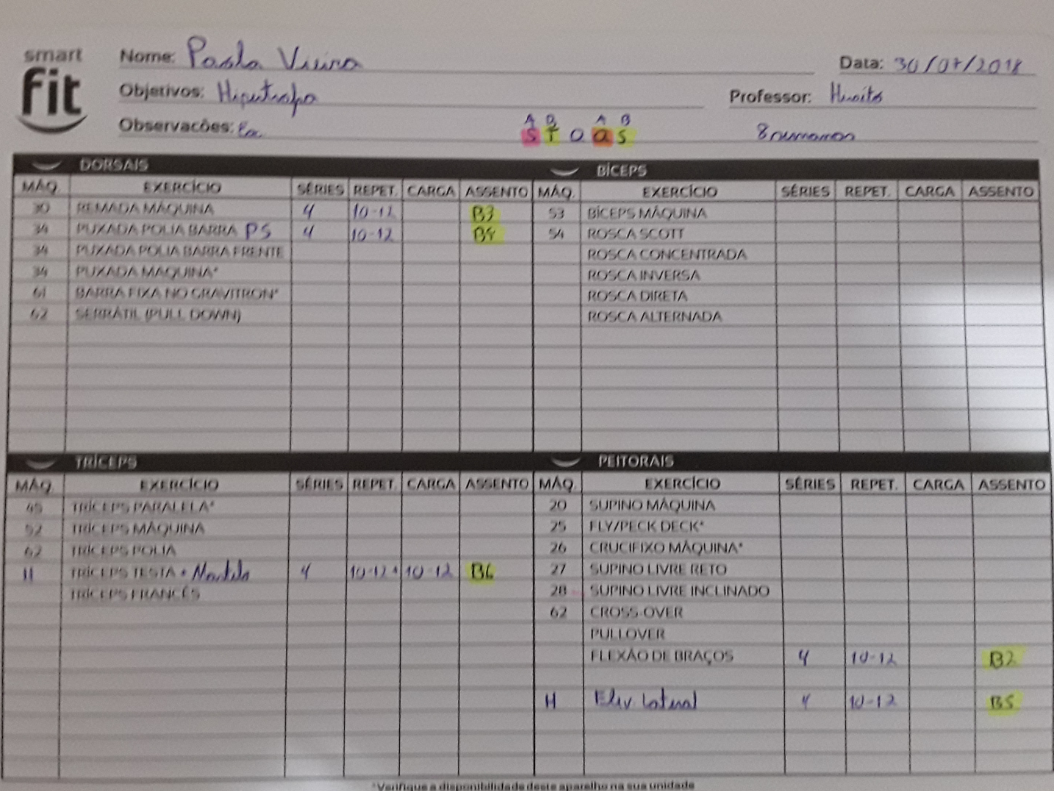 smart
fit
Nome: Paola Vieira
Data: 30/07/2018
Objetivos: Hipertrofia
Professor:
Observações:
A B A B
S T Q Q S
8 semanas
DORSAIS
BÍCEPS
MÁQ. EXERCÍCIO SÉRIES REPET. CARGA ASSENTO MÁQ. EXERCÍCIO SÉRIES REPET. CARGA ASSENTO
30 REMADA MÁQUINA 4 10-12 B3 53 BÍCEPS MÁQUINA
34 PUXADA POLIA BARRA PS 4 10-12 54 ROSCA SCOTT
34 PUXADA POLIA BARRA FRENTE ROSCA CONCENTRADA
34 PUXADA MÁQUINA* ROSCA INVERSA
61 BARRA FIXA NO GRAVITRON* ROSCA DIRETA
62 SERRÁTIL (PULL DOWN) ROSCA ALTERNADA
TRÍCEPS
PEITORAIS
MÁQ. EXERCÍCIO SÉRIES REPET. CARGA ASSENTO MÁQ. EXERCÍCIO SÉRIES REPET. CARGA ASSENTO
45 TRÍCEPS PARALELA* 20 SUPINO MÁQUINA
52 TRÍCEPS MÁQUINA 25 FLY/PECK DECK*
62 TRÍCEPS POLIA 26 CRUCIFIXO MÁQUINA*
H TRÍCEPS TESTA + Martelo 4 10-12 + 10-12 B6 27 SUPINO LIVRE RETO
TRÍCEPS FRANCÊS 28 SUPINO LIVRE INCLINADO
62 CROSS-OVER
PULLOVER
FLEXÃO DE BRAÇOS 4 10-12 B2
H Elev Lateral 4 10-12 B5
*Verifique a disponibilidade deste aparelho na sua unidade